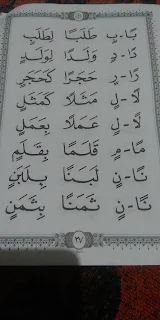 بًا-بٍ طَلَبًا لِطَلَبٍ
دًا-دٍ وَلَدًا لِوَلَدٍ
رًا-رٍ حَجَرًا كَحَجَرٍ
لًا-لٍ مَثَلًا كَمَثَلٍ
لًا-لٍ عَمَلًا بِعَمَلٍ
مًا-مٍ قَلَمًا بِقَلَمٍ
نًا-نٍ لَبَنًا بِلَبَنٍ
نًا-نٍ ثَمَنًا بِثَمَنٍ
٢٧